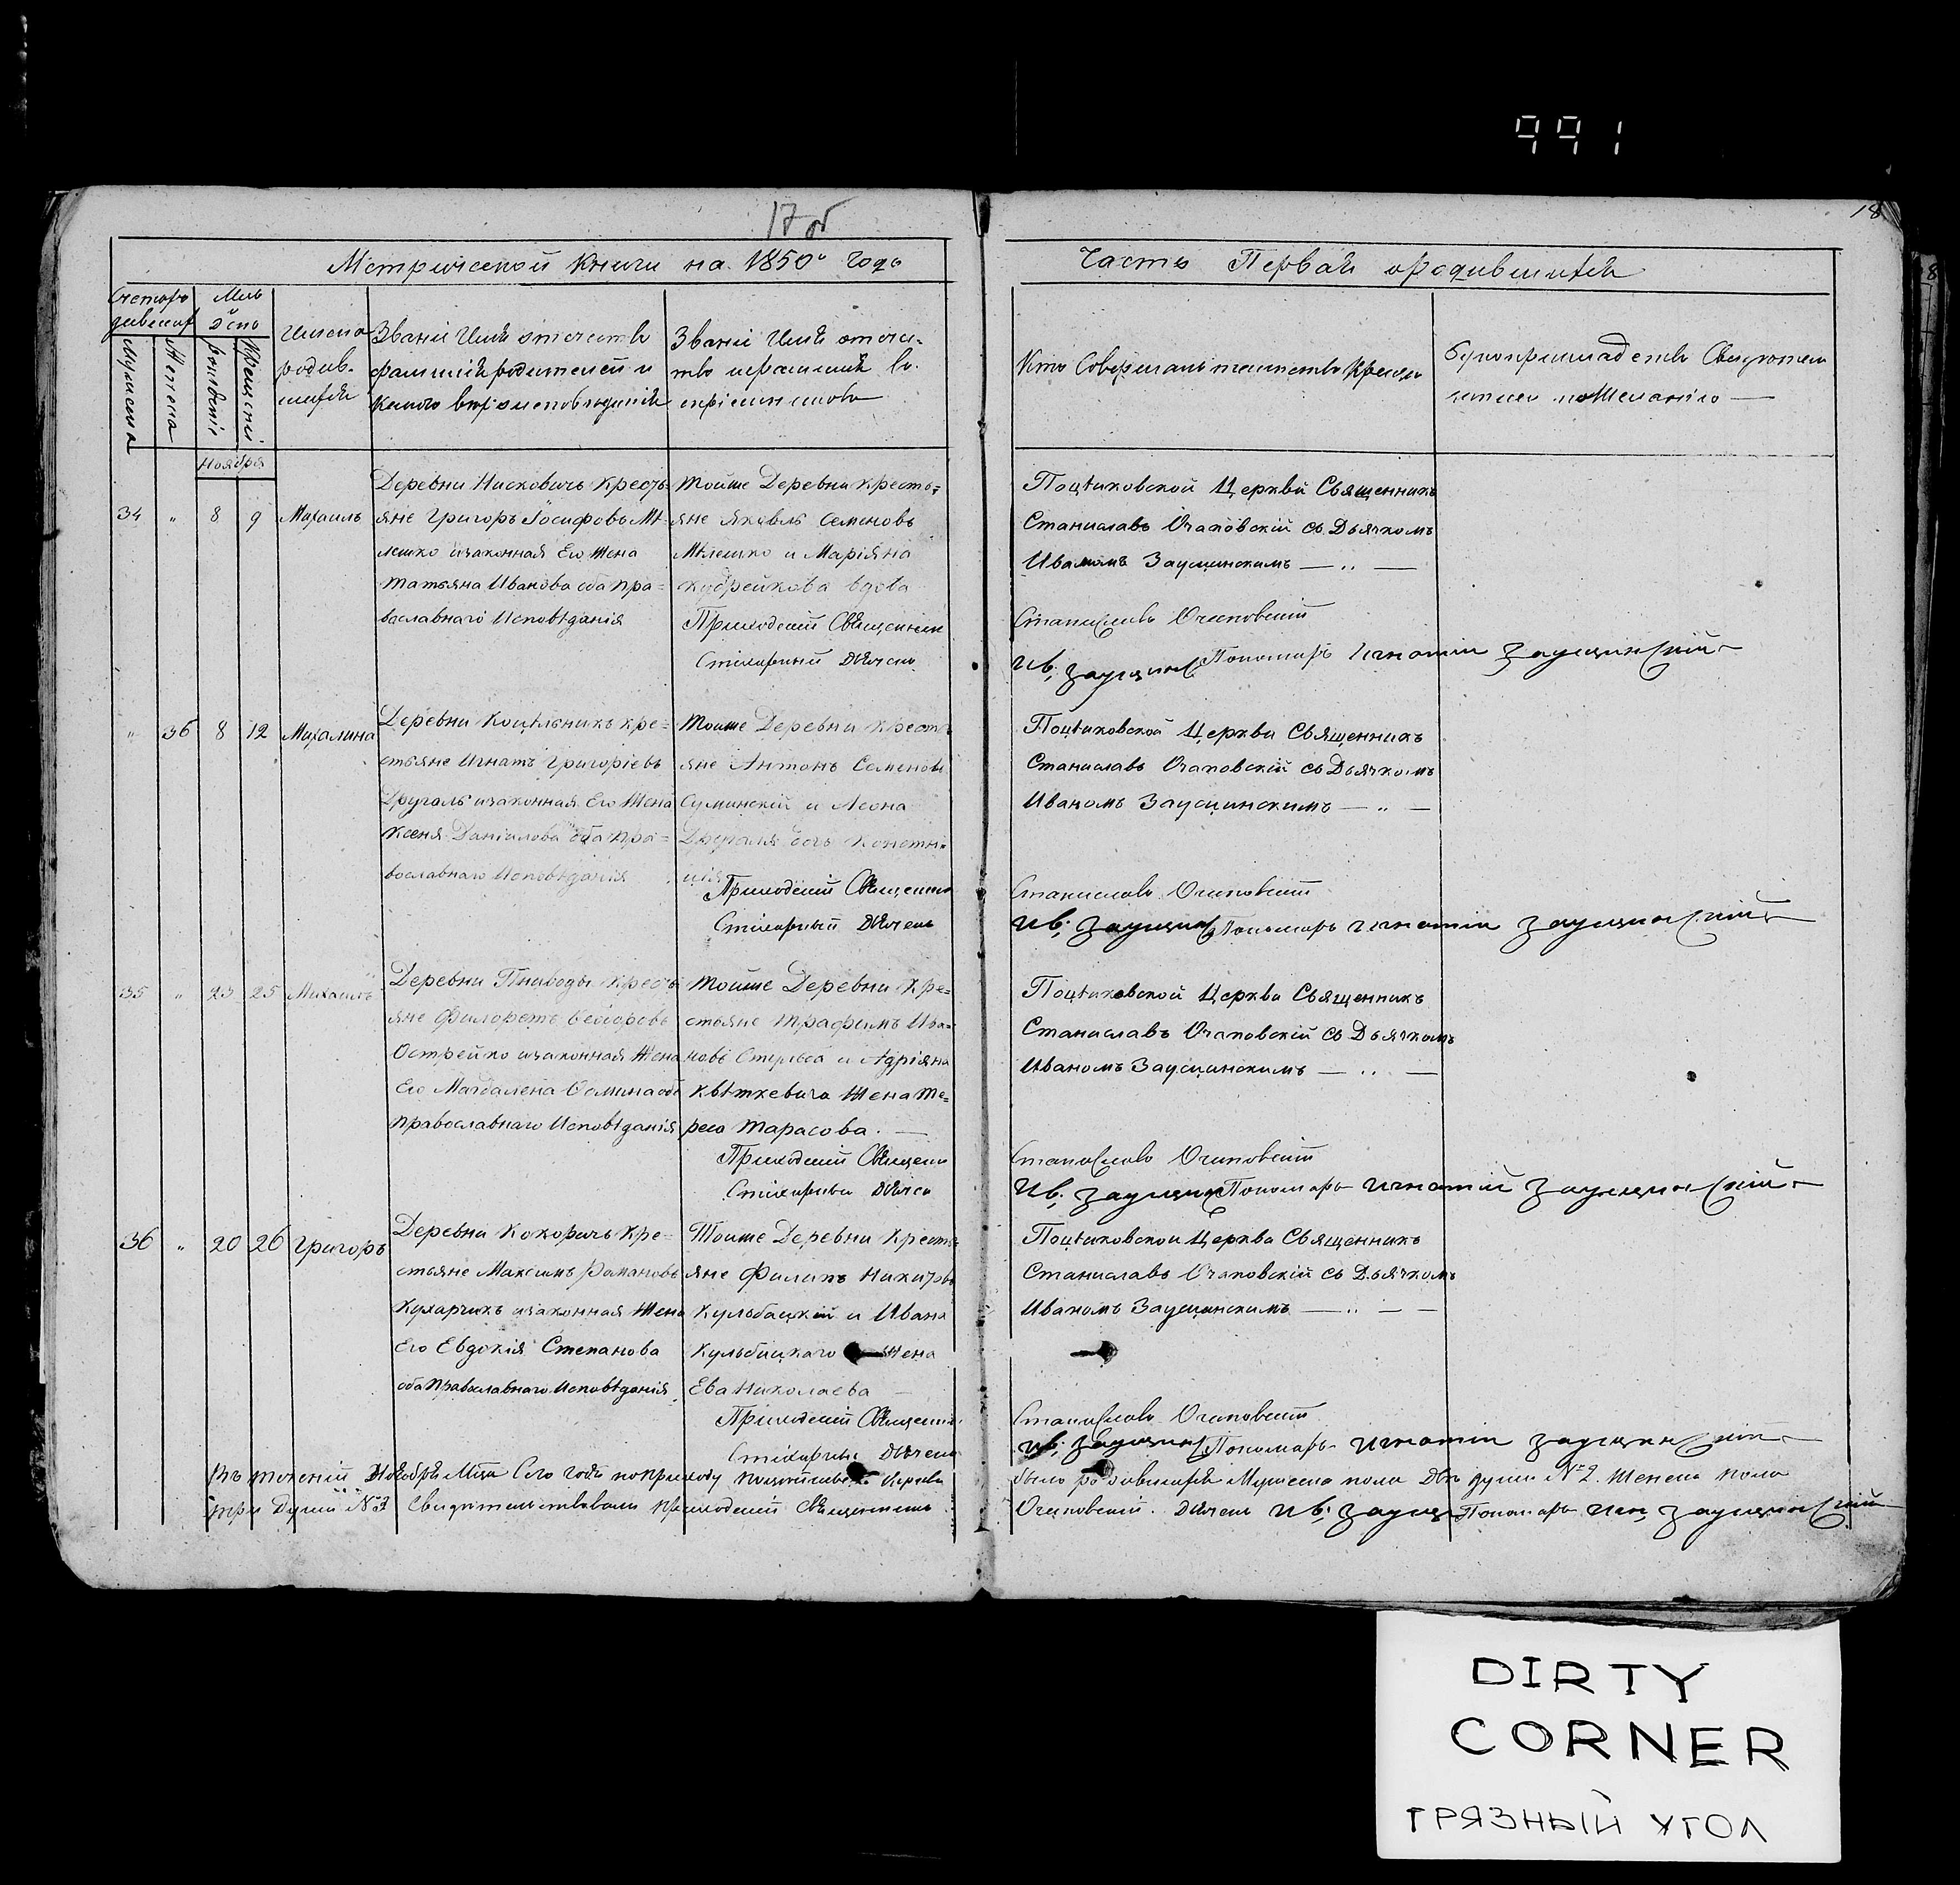 991
17 об
18
Метрической Книги на 1850й Годъ
Часть Первая о родившихся
Счетъ ро
дившихся
Мсць
День
Мужеска
Женска
рожденія
Крещенія
Имена
родив-
шихся
Званіе Имя отечество
фамилія родителей и
какого вероисповеданія
Званіе Имя отече-
тво и фамилія во-
спріемниковъ
Кто Совершалъ таинство Крещен
Рукоприкладство Свидетелей
записи по Желанію
Ноября
34 " 8 9 Михаилъ
Деревни Нисковичъ Кресть=
яне Григоръ Іосифовъ Мѣ-
лешко изаконная Его Жена
Татьяна Иванова оба пра=
вославнаго Исповѣданія
Тойже Деревни Кресть=
яне Яковлъ Семеновъ
Мѣлешко и Маріяна
Кудрейкова вдова
Приходскій Священникъ
Стихарный Дьячекъ
Поцѣиковской Церкви Священникъ
Станиславъ Очаповскій съ Дьячкомъ
Иваномъ Заусцинскимъ — .. —
Станиславъ Очаповскій
Ив; Заусцинс Пономарь Игнатій Заусцинскій
" 36 8 12 Михалина
Деревни Коцѣльникъ Кре=
стьяне Игнатъ Григоріевъ
Другаль изаконная Его Жена
Ксеня Даніилова оба пра=
вославнаго Исповѣданія
Тойже Деревни Кресть
яне Антонъ Семеновъ
Суминскій и Леона
Приходскій Священник
Стихарный Дьячекъ
Поцѣиковской Церкви Священникъ
Станиславъ Очаповскій съ Дьячкомъ
Иваномъ Заусцинскимъ — .. —
Станиславъ Очаповскій
Ив; Заусцинс Пономарь Игнатій Заусцинскій
35 " 23 25 Михаилъ
Деревни Гниводы Кресть
яне Филоретъ Ѳеодоровъ
Острейко изаконная Жена
Его Магдалена Ѳомина оба
Православнаго Исповѣданія
Тойже Деревни Кре=
стьяне Трафимъ Ива=
новъ Стельса и Адріяна
Квѣткевича Жена Те=
реса Тарасова. —
Приходскій Священн
Стихарный Дьячек
Поцѣиковской Церкви Священникъ
Станиславъ Очаповскій съ Дьячкомъ
Иваномъ Заусцинскимъ — .. —
Станиславъ Очаповскій
Ив; Заусцинс Пономарь Игнатій Заусцинскій
36 " 20 26 Григоръ
Деревни Кокоричъ Кре-
стьяне Максимъ Романовъ
Кухарчикъ изаконная Жена
Его Евдокія Степанова
оба Православнаго Исповѣданія
Тойже Деревни Кресть=
яне Филипъ Никитовъ
Кульбацкій и Ивана
Кульбицкаго Жена
Ева Николаева —
Приходскій Священник
Стихарный Дьячекъ
Поцѣиковской Церкви Священникъ
Станиславъ Очаповскій съ Дьячкомъ
Иваномъ Заусцинскимъ — .. — —
Станиславъ Очаповскій
Ив; Заусцинс Пономарь Игнатій Заусцинскій
Въ теченіи Ноября Мца Сего года по приходу Церкви
было родившихся Мужеска пола Двѣ души №2 Женска пола
три Души №2 Свидетельствовали Приходскій Священникъ
Очаповскій. Дьячекъ Ив; Заусц Пономарь Игн, Заусцинскій
DIRTY
CORNER
ГРЯЗНЫЙ УГОЛ